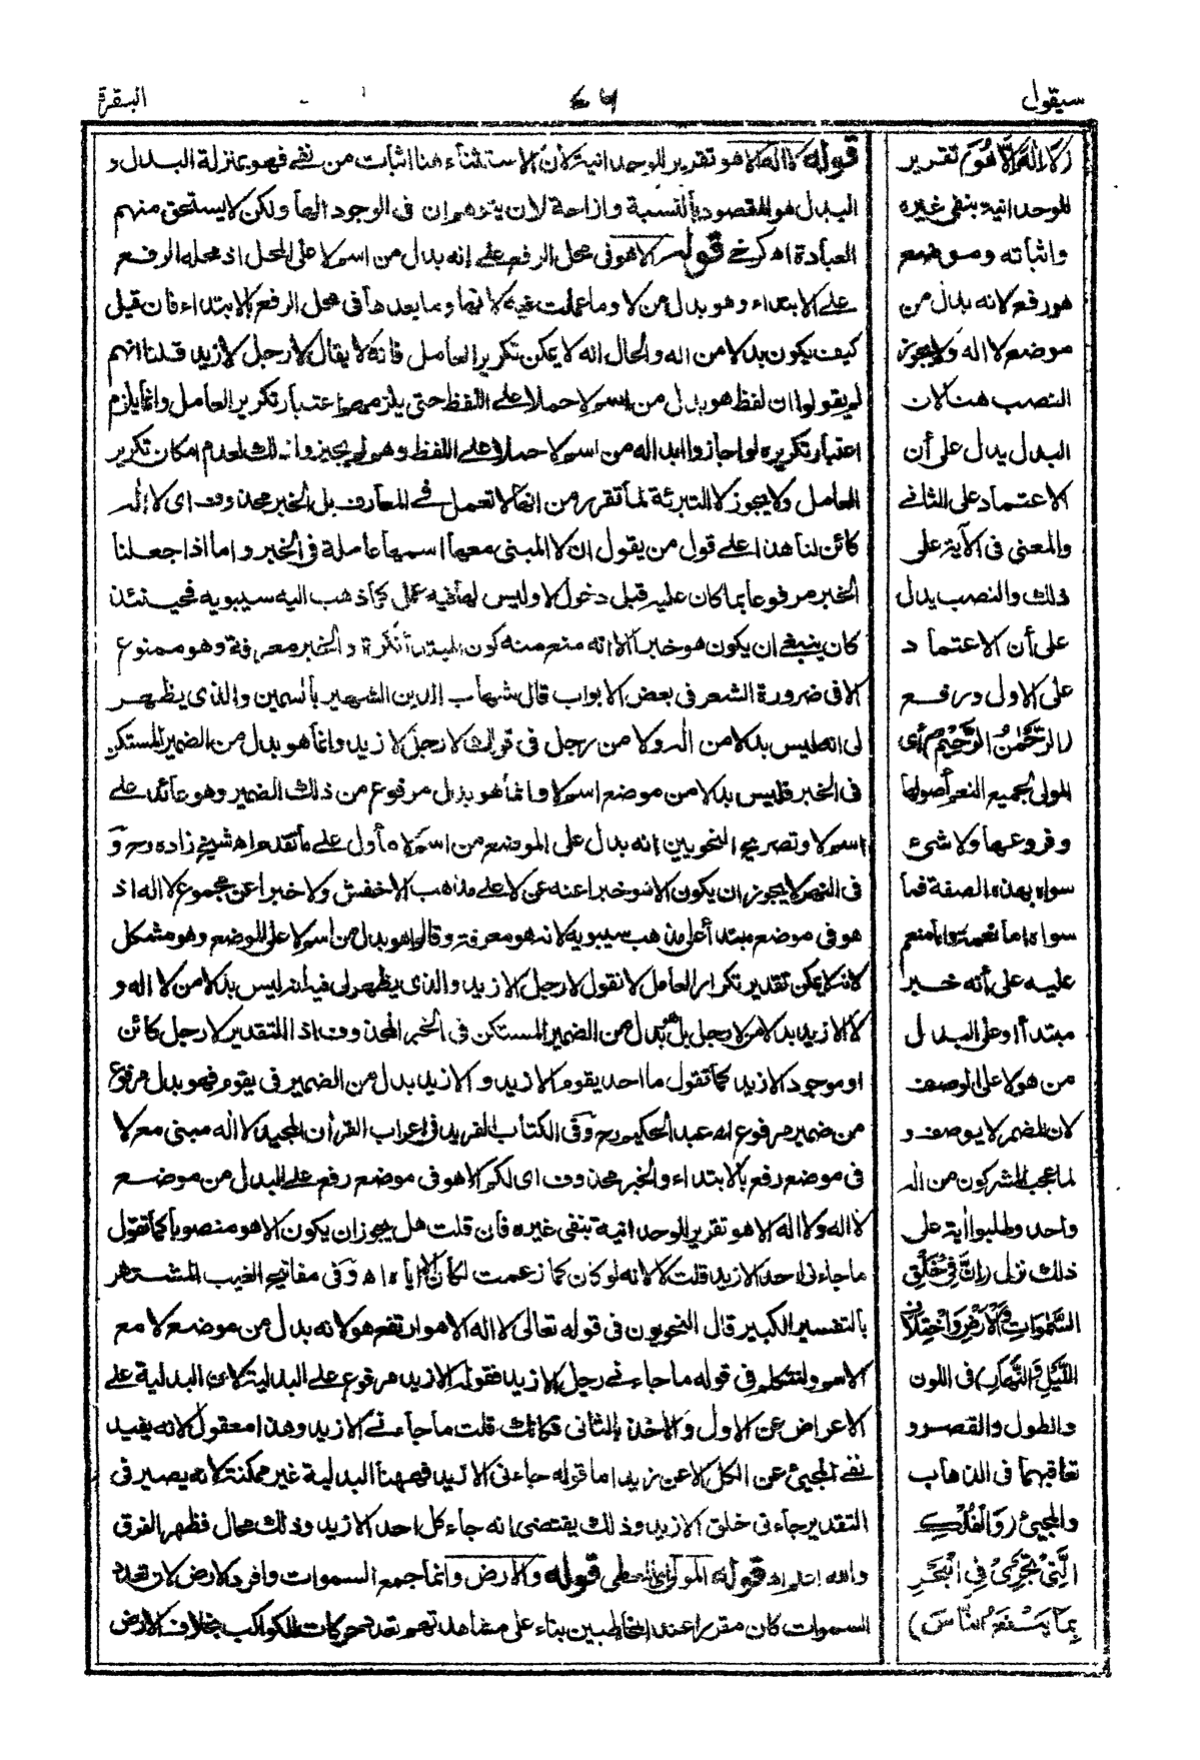 سيقول
البقرة
(لا اله الا هو) تقرير
للوحدانية بنفى غيره
واثباته وموضع
هو رفع لانه بدل من
موضع لا اله ولا يجوز
النصب هنا لان
البدل يدل على أن
الاعتماد على الثانى
والمعنى فى الآية على
ذلك والنصب يدل
على أن الاعتماد
على الاول ورفع
(الرحمن الرحيم) أى
المولى لجميع النعم أصولها
وفروعها ولا شىء
سواه بهذه الصفة فما
سواه اما نعمة واما منعم
عليه على أنه خبر
مبتدأ أو على البدل
من هو لا على الوصف
لان المضمر لا يوصف و
لما عجب المشركون من اله
واحد وطلبوا آية على
ذلك نزل (ان فى خلق
السموات والارض واختلاف
الليل والنهار) فى اللون
والطول والقصر و
تعاقبهما فى الذهاب
والمجىء (والفلك
التى تجرى فى البحر
بما ينفع الناس)
قوله لا اله الا هو تقرير للوحدانية لان الاستثناء هنا اثبات من نفى فهو بمنزلة البدل و
البدل هو المقصود بالنسبة وازاحة لان يتوهم ان فى الوجود الها ولكن لا يستحق منهم
العبادة اه كرخى قوله الا هو فى محل الرفع على انه بدل من اسم لا على المحل اذ محله الرفع
على الابتداء وهو بدل من لا وما عملت فيه لانها وما بعدها فى محل الرفع بالابتداء فان قيل
كيف يكون بدلا من اله والحال انه لا يمكن تكرير العامل فانه لا يقال لا رجل لا زيد قلنا انهم
لم يقولوا ان لفظ هو بدل من اسم لا حملا على اللفظ حتى يلزمهم اعتبار تكرير العامل وانما يلزم
اعتبار تكريره لو اجازوا ابداله من اسم لا حملا على اللفظ وهم لم يجيزوا ذلك لعدم امكان تكرير
العامل ولا يجوز لا التبرئة لما تقرر من انها لا تعمل فى المعارف بل الخبر محذوف اى لا اله
كائن لنا هذا على قول من يقول ان لا المبنى معها اسمها عاملة فى الخبر واما اذا جعلنا
الخبر مرفوعا بما كان عليه قبل دخول لا وليس لها فيه عمل كما ذهب اليه سيبويه فحينئذ
كان ينبغى ان يكون هو خبرا الا انه منع منه كون المبتدأ نكرة والخبر معرفة وهو ممنوع
الا فى ضرورة الشعر فى بعض الابواب قال شهاب الدين الشهير بالسمين والذى يظهر
لى انه ليس بدلا من اله ولا من رجل فى قولك لا رجل الا زيد وانما هو بدل من الضمير المستكن
فى الخبر فليس بدلا من موضع اسم لا وانما هو بدل مرفوع من ذلك الضمير وهو عائد على
اسم لا وتصريح النحويين انه بدل على الموضع من اسم لا مأول على ما تقدم اه شيخ زاده رح و
فى النهر لا يجوز ان يكون الا هو خبرا عنه عن لا على مذهب الاخفش ولا خبرا عن مجموع لا اله اذ
هو فى موضع مبتدأ على مذهب سيبويه لانه هو معرفة وقالوا هو بدل من اسم لا على الموضع وهو مشكل
لانه لا يمكن تقدير تكرار العامل لا نقول لا رجل الا زيد والذى يظهر لى فيه انه ليس بدلا من لا اله و
لا الا زيد بدلا من لا رجل بل هو بدل من الضمير المستكن فى الخبر المحذوف اذ التقدير لا رجل كائن
او موجود الا زيد كما تقول ما احد يقوم الا زيد والا زيد بدل من الضمير فى يقوم فهو بدل مرفوع
من ضمير مرفوع اه عبد الحكيم رح وفى الكتاب الفريد فى اعراب القرآن المجيد لا اله مبنى مع لا
فى موضع رفع بالابتداء والخبر محذوف اى لكم الا هو فى موضع رفع على البدل من موضع
لا اله ولا اله الا هو تقرير للوحدانية تنفى غيره فان قلت هل يجوز ان يكون الا هو منصوبا كما تقول
ما جاءنى احد الا زيد قلت لا لانه لو كان كما زعمت لكان الا اياه اه وفى مفاتيح الغيب المشتهر
بالتفسير الكبير قال النحويون فى قوله تعالى لا اله الا هو ارتفع هو لانه بدل من موضع لا مع
الاسم ولنتكلم فى قوله ما جاءنى رجل الا زيد فقوله الا زيد مرفوع على البدلية لان البدلية على
الاعراض عن الاول والاخذ بالثانى فكانك قلت ما جاءنى الا زيد وهذا معقول لانه يفيد
نفى المجىء عن الكل الا عن زيد اما قوله جاءنى الا زيد فههنا البدلية غير ممكنة لانه يصير فى
التقدير جاءنى خلق الا زيد وذلك يقتضى انه جاء كل احد الا زيد وذلك محال فظهر الفرق
والله اعلم اه قوله المولى اى المعطى قوله والارض وانما جمع السموات وافرد الارض لان تعدد
السموات كان مقررا عند المخاطبين بناء على مشاهدتهم تعدد حركات الكواكب بخلاف الارض